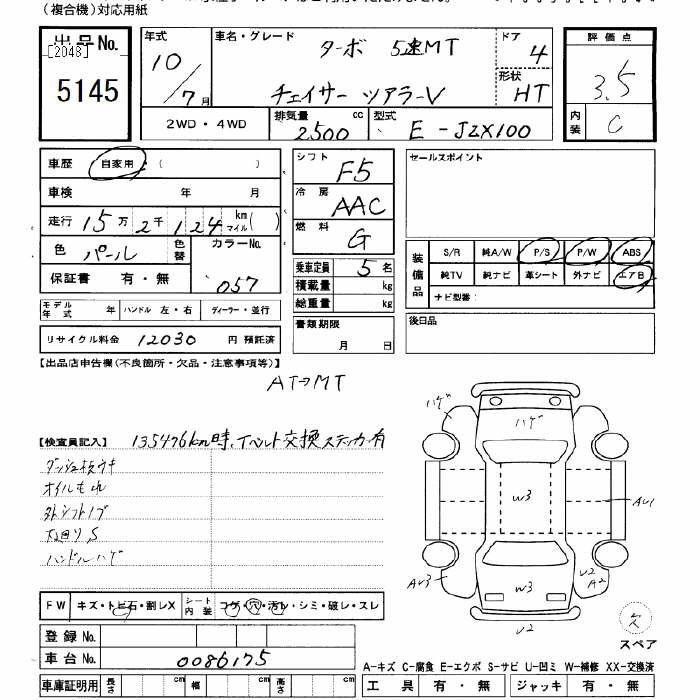 (複合機)対応用紙
出品No.
[2048]
5145
年式
10/7月
車名・グレード
ターボ 5速MT
チェイサー ツアラーV
ドア
4
形状
HT
評価点
3.5
内装
C
2WD・4WD
排気量
2500 cc
型式
E-JZX100
車歴 自家用 ( )
車検 年 月
走行 15万2千124 km マイル( )
色 パール
色替
カラーNo.
057
保証書 有・無
シフト F5
冷房 AAC
燃料 G
乗車定員 5名
積載量 kg
総重量 kg
セールスポイント
装備品
S/R 純A/W P/S P/W ABS
純TV 純ナビ 革シート 外ナビ エアB
ナビ型番：
モデル年式 年 ハンドル 左・右 ディーラー・並行
書類期限
月 日
後日品
リサイクル料金 12030 円 預託済
【出品店申告欄(不良箇所・欠品・注意事項等)】
AT→MT
【検査員記入】 135476km時、T.ベルト交換ステッカー有
オイルもれ
外シフトノブ
下回りS
ハンドルハゲ
ハゲ
ハゲ
W3
AU1
AU3
W3
U2
A2
U2
欠
スペア
FW キズ・トビ石・割レX シート内装 コゲ・穴・汚レ・シミ・破レ・スレ
登録No.
車台No. 0086175
A-キズ C-腐食 E-エクボ S-サビ U-凹ミ W-補修 XX-交換済
車庫証明用 長さ cm 幅 cm 高さ cm
工具 有・無 ジャッキ 有・無